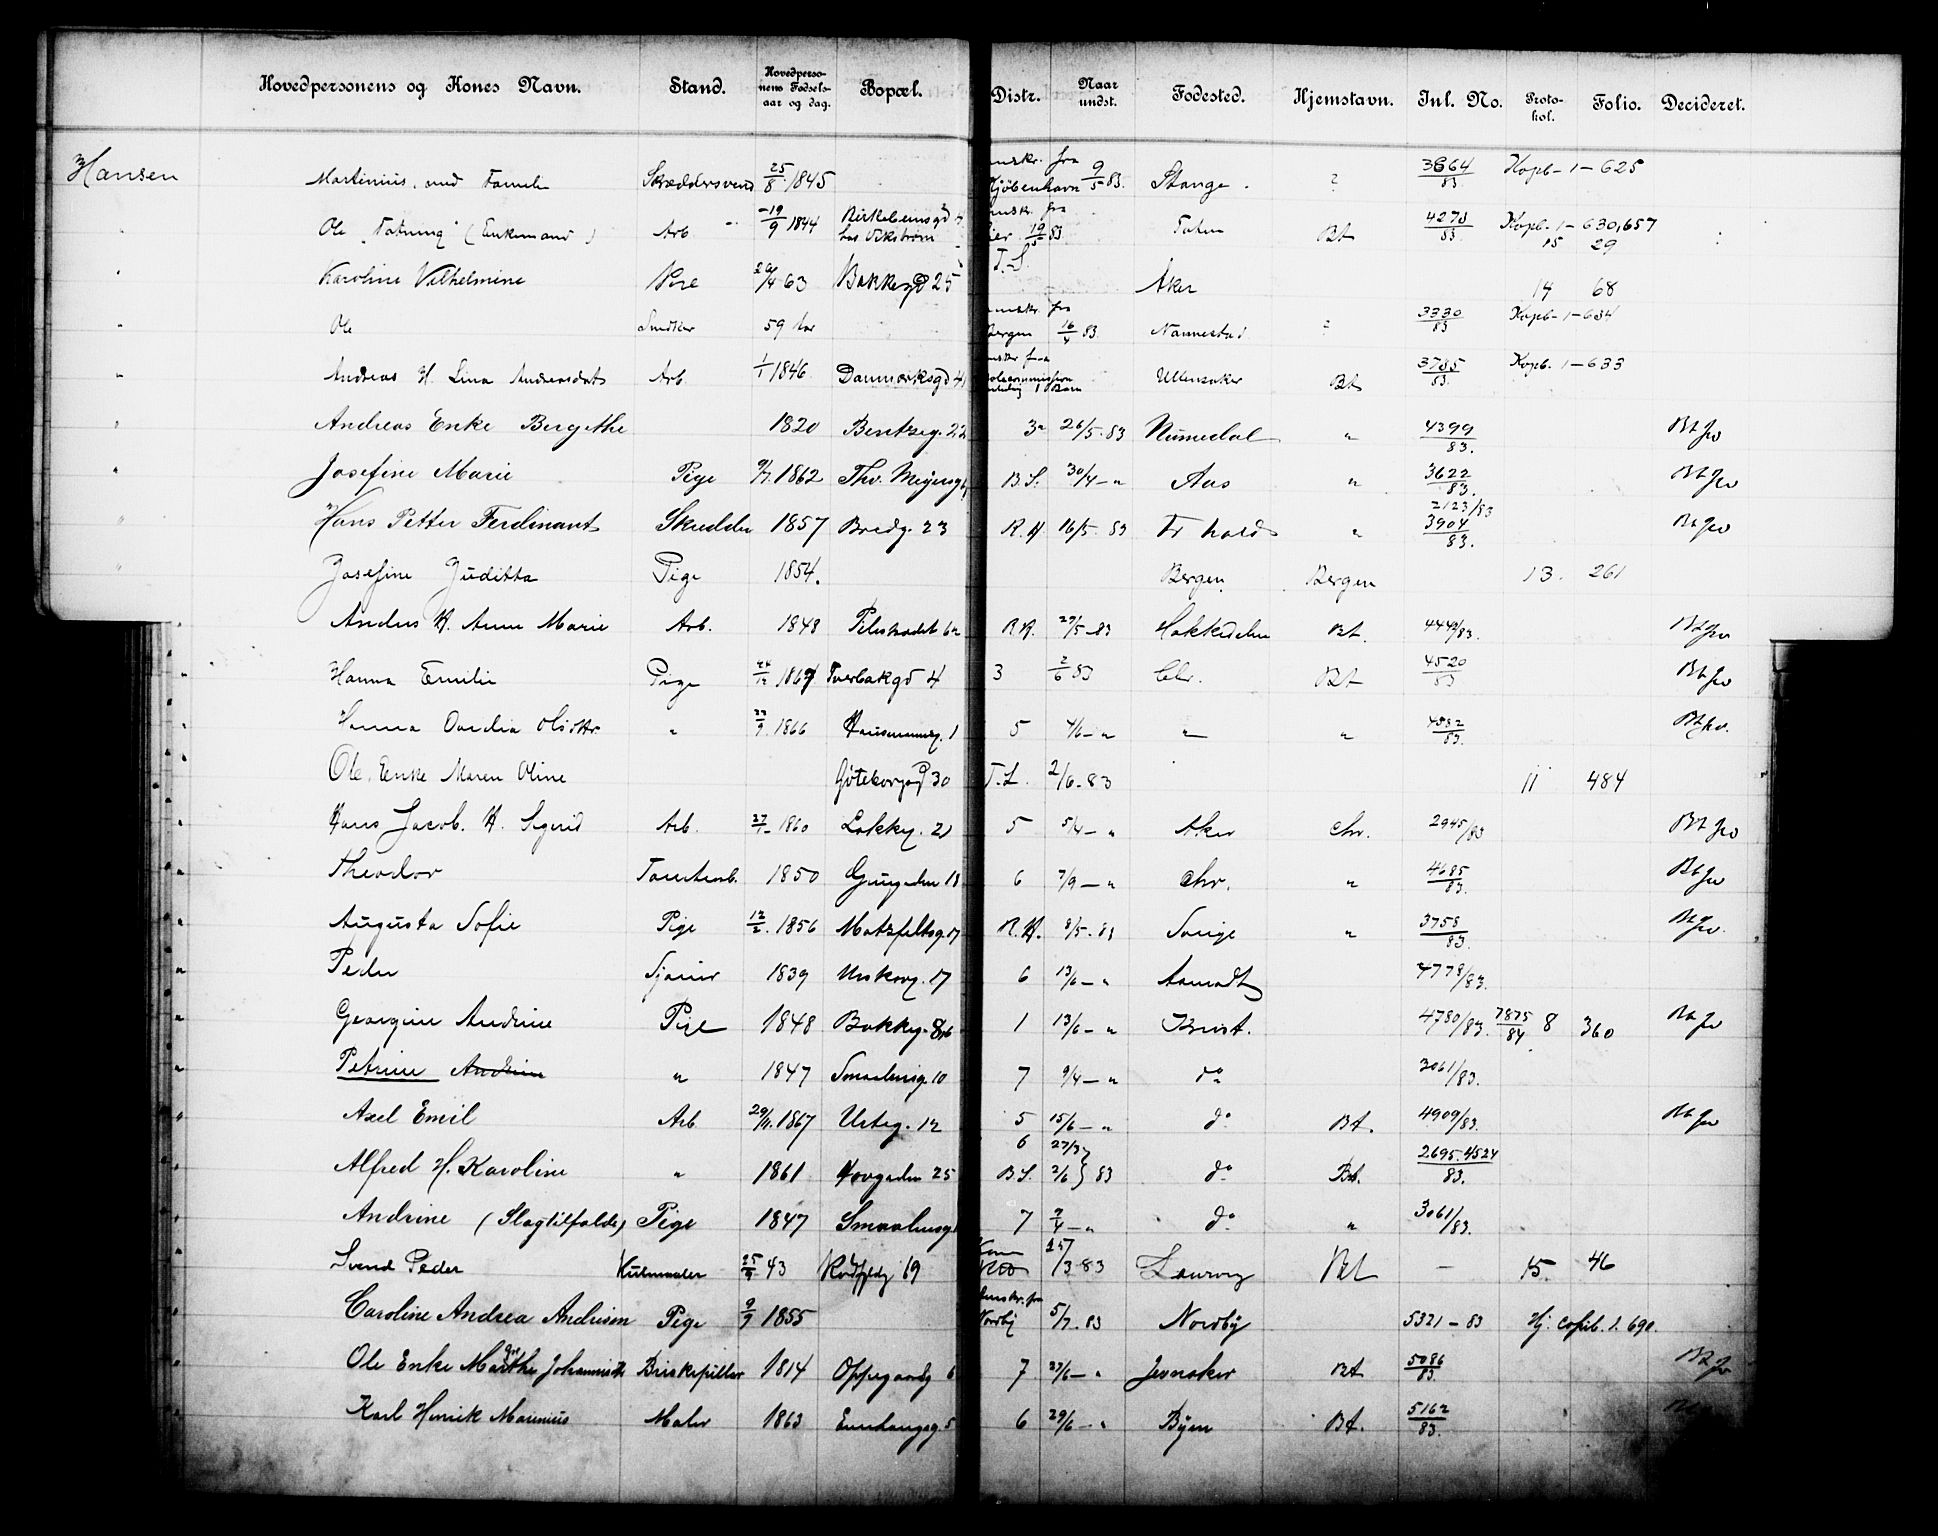 Hovedpersonens og Kones Navn. Stand. Hovedpersonens Fødselsaar og dag. Bopæl. Distr. Naar undst. Fødested. Hjemstavn. Inl. No. Protokol. Folio. Decideret.
Hansen Martinius, med Familie Skræddersvend 25/8 1845 Kjøbenhavn 9/5 83. Stange. ? 3864/83. Kopb-1-625
" Ole "Totning" (Enkemand) Arb. 19/9 1844 19/5 83 Toten Bt 4273/83. Kopb. 1-630,657 15 29
" Karoline Vilhelmine Pige 63 Bakkegd 25 T.L. Aker 14 68
" Ole Snedker 59 aar Bergen 16/4 83 Nannestad ? 3330/83 Kopb-1-634
" Andreas H. Lina Andreasdat Arb. 1/1 1846 Danmarksgd 41 1 Barn Ullensaker Bt 3785/83. Kopb. 1-633
" Andreas Enke Bergithe 1820 Bentseg. 22 3 26/5. 83 Numedal " 4399/83. Bt Jv
" Josefine Marie Pige 1862 Thv. Meyersg B.S. 30/4 - " Aas " 3622/83. Bt Jv
" Hans Petter Ferdinant Skredder 1857 Bredg. 23 R.H 16/5. 83 Fr hald " 2123/83 3904/83. Bt Jv
" Josefine Juditta Pige 1854. Bergen. Bergen 13. 261
" Anders H. Anne Marie Arb. 1848 Pilestrædet 62 R.H. 29/5-83 Hakkedalen Bt. 4442/83. Bt Jv
" Hanna Emilie Pige 24/12 1867 Tverbakgd 4 3 2/6 83 Chr. Bt 4520/83 Bt Jv
" Hanna Oardia Olsdttr. " 1866 Hausmannsg. 1 5 4/6 - " " " 4532/83. Bt Jv.
Ole. Enke Maren Oline Göteborggd 30 T.L. 2/6. 83 11 484
" Hans Jacob. H. Sigrid Arb. 27/1 1860 Lakkg. 21 5 5/4 - " Aker Chr. 2945/83 Bt Jv
" Theodor 1850 18 6 7/9 - " Chr. " 4685/83. Bt Jv
" Augusta Sofie Pige 12/2. 1856 Motzfeltsg. 17 R.H. 8/5. 83 " 3758/83. Bt Jv.
" Peder Sjouer 1839 Urskovg. 17 6 13/6 - " 4778/83.
" Georgine Andrine Pige 1848 Bakkeg. 8 1 13/6 - " Krist. 4780/83. 7875/84 8 360 Bt Jv
" Petrine Andrine " 1847 Smaalensg. 10 7 9/4 - " do 3061/83.
" Axel Emil Arb 29/11. 1867 Urteg. 12 5 15/6 - " do Bt. 4909/83. Bt Jv
" Alfred H. Karoline " 1861 Torvgaden 25 6 B.S. 27/3 2/6 } 83 do Bt. 2695.4524/83.
" Andrine (Slagtilfælde) Pige 1847 Smaalensg 7 9/4 - " do " 3061/83.
Svend Peder Kulmaaler 25/9 43 Rodfyldg 19 /3 83 Laurvig Bt - 15. 46
Caroline Andrea Andrine Pige 9/9 1855 Nordby 5/7. 83 Nordby 5321-83 Hj. copib. 1. 690.
" Ole Enke Marthe Johannesdt Briskepiller 1814 Oppegaardg 6 7 27/6 - " Jevnaker Bt 5086/83. Bt Jv
" Karl Henrik Marinius Maler 1863 Enerhaugsg. 5 6 29/6 - " Byen Bt. 5162/83.